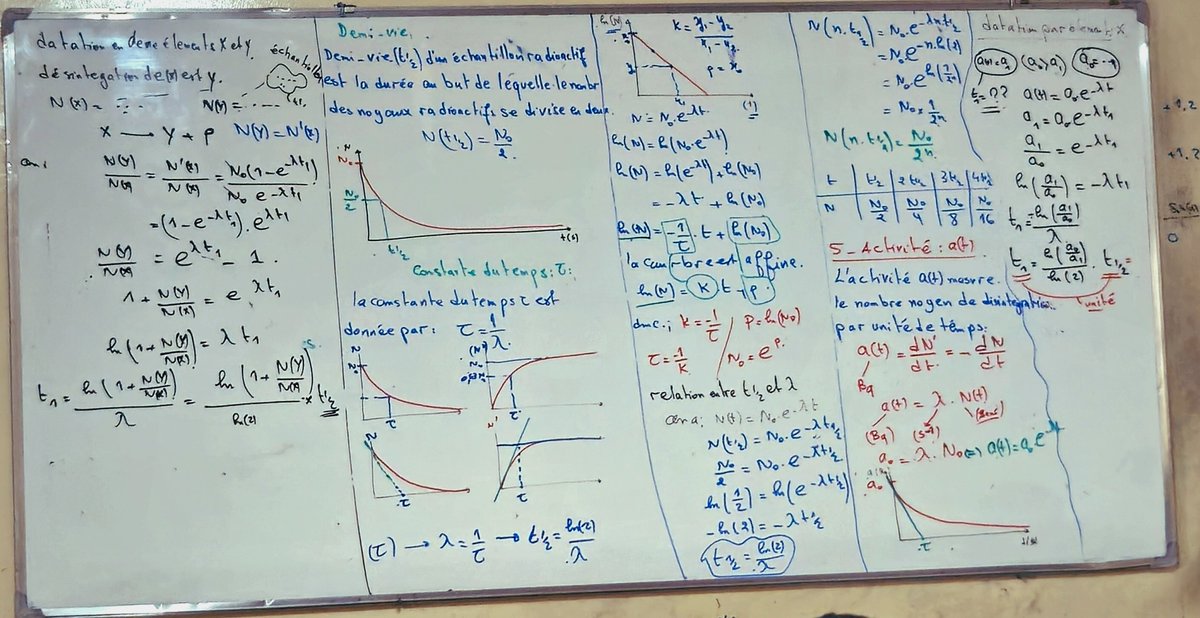 datation en deux éléments X et y.
désintegration de(x) est y.
échantillon
N(X) = ----
N(Y) = -----
t1.
X → Y + P N(Y) = N'(x)
an:
N(Y)/N(X) = N'(x)/N(x) = N₀(1-e^-λt1)/N₀ e^-λt1
= (1-e^-λt1).e^λt1
N(Y)/N(X) = e^λt1 - 1.
1 + N(Y)/N(X) = e^λt1
ln(1 + N(Y)/N(X)) = λ t1
t1 = ln(1 + N(Y)/N(X))/λ = ln(1 + N(Y)/N(X))/ln(2) × t1/2
Demi-vie.
Demi-vie(t1/2) d'un échantillon radioactif
est la durée au but de léquelle le nombr
des noyaux radioactifs se divise en deux.
N(t1/2) = N₀/2.
N
N₀
N₀/2
t1/2
t(s)
Constante du temps: τ:
la constante du temps τ est
donnée par: τ = 1/λ.
N
N₀
τ
(N')
N₀
τ
N
τ
N'
τ
(τ) → λ = 1/τ → t1/2 = ln(2)/λ
ln(N)
K = y1-y2/x1-x2
(t)
N = N₀ e^-λt
ln(N) = ln(N₀ e^-λt)
ln(N) = ln(e^-λt) + ln(N₀)
= -λt + ln(N₀)
ln(N) = -1/τ . t + ln(N₀)
la courbe est affine.
ln(N) = K t + P.
dnc.; K = -1/τ / P = ln(N₀)
τ = -1/K N₀ = e^P.
relation entre t1/2 et λ
on a; N(t) = N₀ e^-λt
N(t1/2) = N₀ e^-λt1/2
N₀/2 = N₀ e^-λt1/2
ln(1/2) = ln(e^-λt1/2)
-ln(2) = -λt1/2
t1/2 = ln(2)/λ
N(n.t1/2) = N₀ e^-λnt1/2
= N₀ e^-n.ln(2)
= N₀ e^ln(1/2^n)
= N₀ × 1/2^n
N(n.t1/2) = N₀/2^n
t | t1/2 | 2t1/2 | 3t1/2 | 4t1/2
N | N₀/2 | N₀/4 | N₀/8 | N₀/16
5 - Activité: a(t)
L'activité a(t) mesure
le nombre moyen de disintegration
par unité de temps:
a(t) = dN'/dt = -dN/dt
Bq
a(t) = λ . N(t)
(Bq) (s⁻¹)
a₀ = λ . N₀ => a(t) = a₀ e^-λt
a₀
τ
datation par éléments X
(a₀ > a1)
t1 = ??
a(t) = a₀ e^-λt
a1 = a₀ e^-λt1
a1/a₀ = e^-λt1
ln(a1/a₀) = -λt1
t1 = -ln(a1/a₀)/λ
t1 = ln(a₀/a1)/ln(2) . t1/2
unité
+1,2
+1,2
0